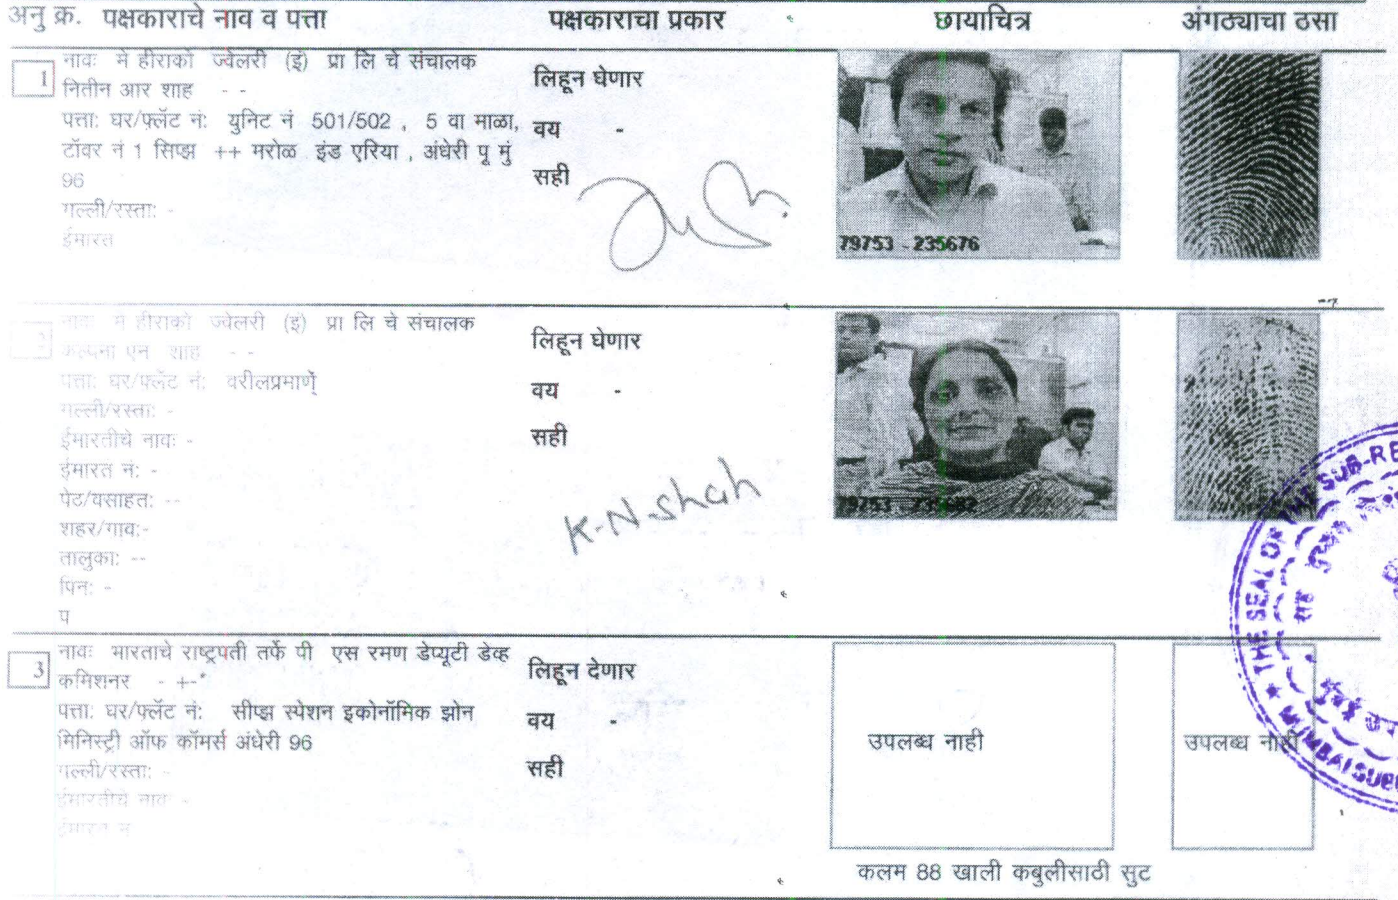 अनु क्र. पक्षकाराचे नाव व पत्ता पक्षकाराचा प्रकार छायाचित्र अंगठ्याचा ठसा
1 नावः मे हीराको ज्वेलरी (इं) प्रा लि चे संचालक
नितीन आर शाह - -
पत्ता: घर/फ्लॅट नं: युनिट नं 501/502 , 5 वा माळा,
टॉवर नं 1 सिप्झ ++ मरोळ इंड एरिया , अंधेरी पू मुं
96
गल्ली/रस्ता: -
ईमारत
लिहून घेणार
वय -
सही
79753 - 235676
2 नावः मे हीराको ज्वेलरी (इं) प्रा लि चे संचालक
कल्पना एन शाह - -
पत्ता: घर/फ्लॅट नं: वरीलप्रमाणे
गल्ली/रस्ता: -
ईमारतीचे नावः -
ईमारत नं: -
पेठ/वसाहत: --
शहर/गाव:-
तालुका: --
पिन: -
प
लिहून घेणार
वय -
सही
K-N-Shah
79753
3 नावः भारताचे राष्ट्रपती तर्फे पी एस रमण डेप्युटी डेव्ह
कमिशनर - +-*
पत्ता: घर/फ्लॅट नं: सीप्झ स्पेशन इकोनॉमिक झोन
मिनिस्ट्री ऑफ कॉमर्स अंधेरी 96
गल्ली/रस्ता: -
ईमारतीचे नावः -
ईमारत नं
लिहून देणार
वय -
सही
उपलब्ध नाही
उपलब्ध नाही
कलम 88 खाली कबुलीसाठी सुट
THE SEAL OF THE SUB-RE
MUMBAI SUB